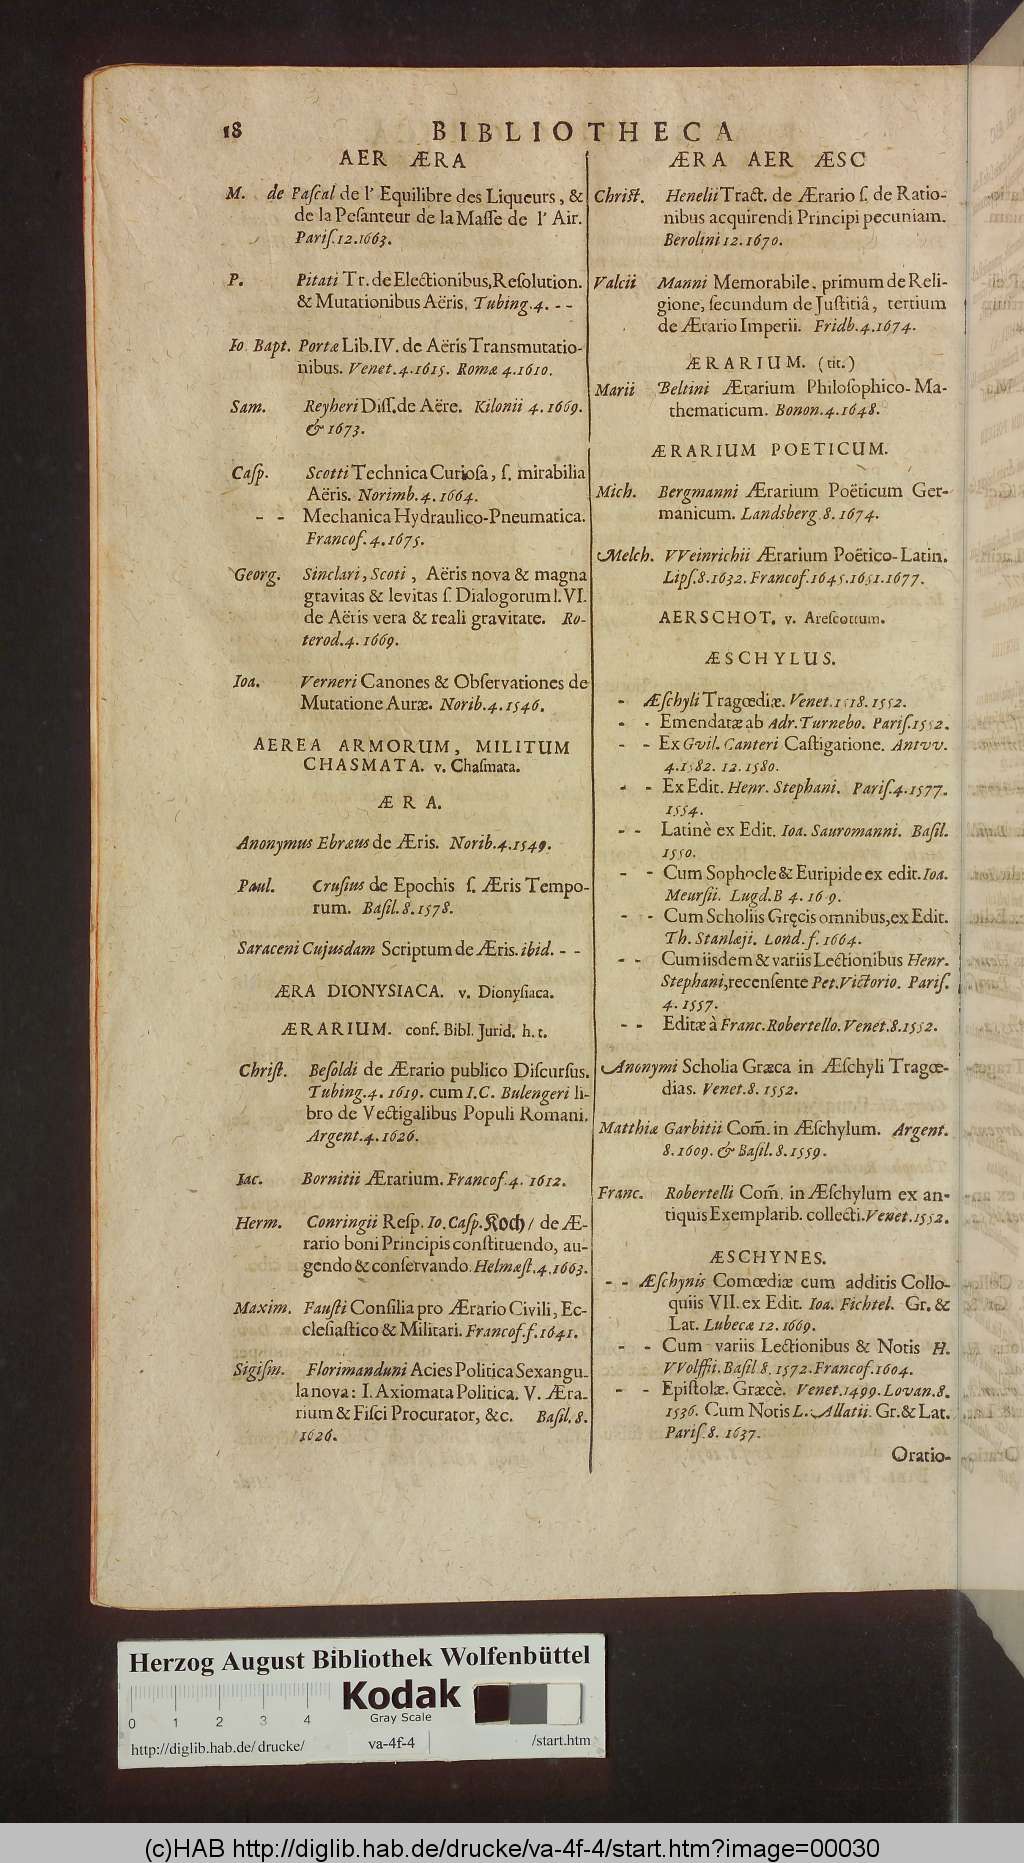 18 BIBLIOTHECA
AER ÆRA
M. de Paſcal de l' Equilibre des Liqueurs, &
de la Peſanteur de la Maſſe de l' Air.
Pariſ. 12. 1663.
P. Pitati Tr. de Electionibus, Reſolution.
& Mutationibus Aëris. Tubing. 4. - -
Io. Bapt. Portæ Lib. IV. de Aëris Transmutatio-
nibus. Venet. 4. 1615. Romæ 4. 1610.
Sam. Reyheri Diſſ. de Aëre. Kilonii 4. 1669.
& 1673.
Caſp. Scotti Technica Curioſa, ſ. mirabilia
Aëris. Norimb. 4. 1664.
- - Mechanica Hydraulico-Pneumatica.
Francof. 4. 1675.
Georg. Sinclari, Scoti, Aëris nova & magna
gravitas & levitas ſ. Dialogorum l. VI.
de Aëris vera & reali gravitate. Ro-
terod. 4. 1669.
Ioa. Verneri Canones & Obſervationes de
Mutatione Auræ. Norib. 4. 1546.
AEREA ARMORUM, MILITUM
CHASMATA. v. Chaſmata.
ÆRA.
Anonymus Ebræus de Æris. Norib. 4. 1549.
Paul. Cruſius de Epochis ſ. Æris Tempo-
rum. Baſil. 8. 1578.
Saraceni Cujusdam Scriptum de Æris. ibid. - -
ÆRA DIONYSIACA. v. Dionyſiaca.
ÆRARIUM. conf. Bibl. Jurid. h. t.
Chriſt. Beſoldi de Ærario publico Diſcurſus.
Tubing. 4. 1619. cum I. C. Bulengeri li-
bro de Vectigalibus Populi Romani.
Argent. 4. 1626.
Iac. Bornitii Ærarium. Francof. 4. 1612.
Herm. Conringii Reſp. Io. Caſp. Koch / de Æ-
rario boni Principis conſtituendo, au-
gendo & conſervando. Helmæſt. 4. 1663.
Maxim. Fauſti Conſilia pro Ærario Civili, Ec-
cleſiaſtico & Militari. Francof. f. 1641.
Sigiſm. Florimanduni Acies Politica Sexangu-
la nova: I. Axiomata Politica. V. Æra-
rium & Fiſci Procurator, &c. Baſil. 8.
1626.
ÆRA AER ÆSC
Chriſt. Henelii Tract. de Ærario ſ. de Ratio-
nibus acquirendi Principi pecuniam.
Berolini 12. 1670.
Valcii Manni Memorabile. primum de Reli-
gione, ſecundum de Juſtitiâ, tertium
de Ærario Imperii. Fridb. 4. 1674.
ÆRARIUM. (tit.)
Marii Beltini Ærarium Philoſophico-Ma-
thematicum. Bonon. 4. 1648.
ÆRARIUM POETICUM.
Mich. Bergmanni Ærarium Poëticum Ger-
manicum. Landsberg. 8. 1674.
Melch. VVeinrichii Ærarium Poëtico-Latin.
Lipſ. 8. 1632. Francof. 1645. 1651. 1677.
AERSCHOT. v. Areſcottum.
ÆSCHYLUS.
- Æſchyli Tragœdiæ. Venet. 1518. 1552.
- - Emendatæ ab Adr. Turnebo. Pariſ. 1552.
- - Ex Gvil. Canteri Caſtigatione. Antvv.
4. 1582. 12. 1580.
- - Ex Edit. Henr. Stephani. Pariſ. 4. 1577.
1554.
- - Latinè ex Edit. Ioa. Sauromanni. Baſil.
1550.
- - Cum Sophocle & Euripide ex edit. Ioa.
Meurſii. Lugd. B 4. 16 9.
- - Cum Scholiis Gręcis omnibus, ex Edit.
Th. Stanlæji. Lond. f. 1664.
- - Cum iisdem & variis Lectionibus Henr.
Stephani, recenſente Pet. Victorio. Pariſ.
4. 1557.
- - Editæ à Franc. Robertello. Venet. 8. 1552.
Anonymi Scholia Græca in Æſchyli Tragœ-
dias. Venet. 8. 1552.
Matthiæ Garbitii Com̃. in Æſchylum. Argent.
8. 1609. & Baſil. 8. 1559.
Franc. Robertelli Com̃. in Æſchylum ex an-
tiquis Exemplarib. collecti. Venet. 1552.
ÆSCHYNES.
- - Æſchynis Comœdiæ cum additis Collo-
quiis VII. ex Edit. Ioa. Fichtel. Gr. &
Lat. Lubecæ 12. 1669.
- - Cum variis Lectionibus & Notis H.
VVolffii. Baſil 8. 1572. Francof. 1604.
- - Epiſtolæ. Græcè. Venet. 1499. Lovan. 8.
1536. Cum Notis L. Allatii. Gr. & Lat.
Pariſ. 8. 1637.
Oratio-
Herzog August Bibliothek Wolfenbüttel
Kodak
Gray Scale
0 1 2 3 4
http://diglib.hab.de/drucke/ va-4f-4 /start.htm
(c)HAB http://diglib.hab.de/drucke/va-4f-4/start.htm?image=00030